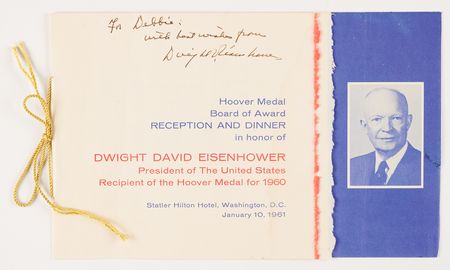 For Debbie:
with best wishes from
Dwight D Eisenhower
Hoover Medal
Board of Award
RECEPTION AND DINNER
in honor of
DWIGHT DAVID EISENHOWER
President of The United States
Recipient of the Hoover Medal for 1960
Statler Hilton Hotel, Washington, D.C.
January 10, 1961